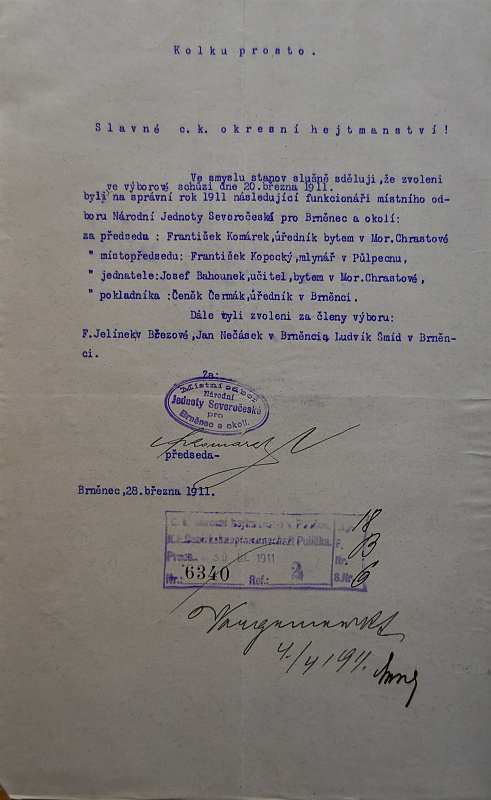 Kolku prosto.
Slavné c.k. okresní hejtmanství!
Ve smyslu stanov slušně sděluji, že zvoleni
ve výborové schůzi dne 20.března 1911.
byli na správní rok 1911 následující funkcionáři místního od-
boru Národní Jednoty Severočeské pro Brněnec a okolí:
za předseda : František Komárek,úředník bytem v Mor.Chrastové
" místopředsedu: František Kopecký,mlynář v Půlpecnu,
" jednatele:Josef Bahounek,učitel,bytem v Mor.Chrastové,
" pokladníka :Čeněk Čermák,úředník v Brněnci.
Dále byli zvoleni za členy výboru:
F.Jelínek v Březové,Jan Nečásek v Brněnci a Ludvík Smíd v Brněn-
ci.
Za:
Místní odbor
Národní
Jednoty Severočeské
pro
Brněnec a okolí.
předseda-
Brněnec,28.března 1911.
18
K.k. Bezirkshauptmannschaft Polička. F. B
Praes. 30 III. 1911 Nr.
Nr.: 6340 Ref.: 2 S.Nr. 6
4/4 1911.